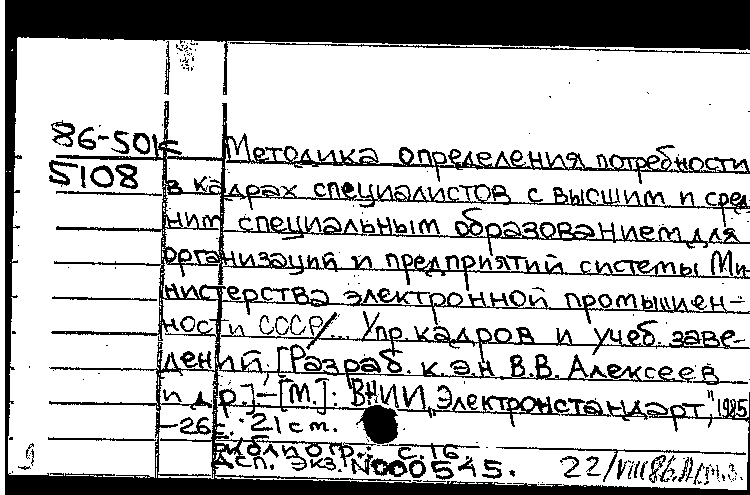 86-501к
5108
Методика определения потребности
в кадрах специалистов с высшим и сред-
ним специальным образованием для
организаций и предприятий системы Ми-
нистерства электронной промышлен-
ности СССР/... Упр. кадров и учеб. заве-
дений, [Разраб. к.э.н В.В. Алексеев
и др.]-[М.]: ВНИИ „Электронстандарт", 1985
-26с. 21 см.
Библиогр.: с.16.
Асп. экз. N000545.
22/VIII 86.
9